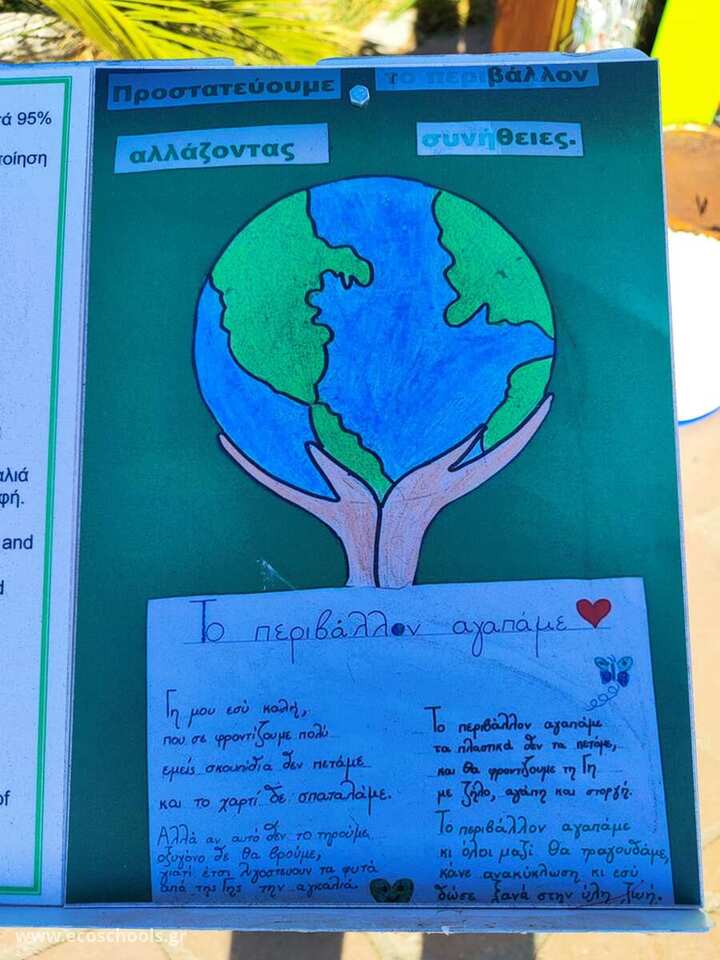 ά 95%
οίηση
αλιά
φή.
and
d
of
Προστατεύουμε το περιβάλλον
αλλάζοντας συνήθειες.
Το περιβάλλον αγαπάμε
Γη μου εσύ καλή,
που σε φροντίζουμε πολύ
εμείς σκουπίδια δεν πετάμε
και το χαρτί δε σπαταλάμε.
Αλλά αν αυτό δεν το τηρούμε
οξυγόνο δε θα βρούμε,
γιατί έτσι λιγοστεύουν τα φυτά
από της Γης την αγκαλιά.
Το περιβάλλον αγαπάμε
τα πλαστικά δεν τα πετάμε,
και θα φροντίζουμε τη Γη
με ζήλο, αγάπη και στοργή.
Το περιβάλλον αγαπάμε
κι όλοι μαζί θα τραγουδάμε,
κάνε ανακύκλωση κι εσύ
δώσε ξανά στην ύλη ζωή.
www.ecoschools.gr